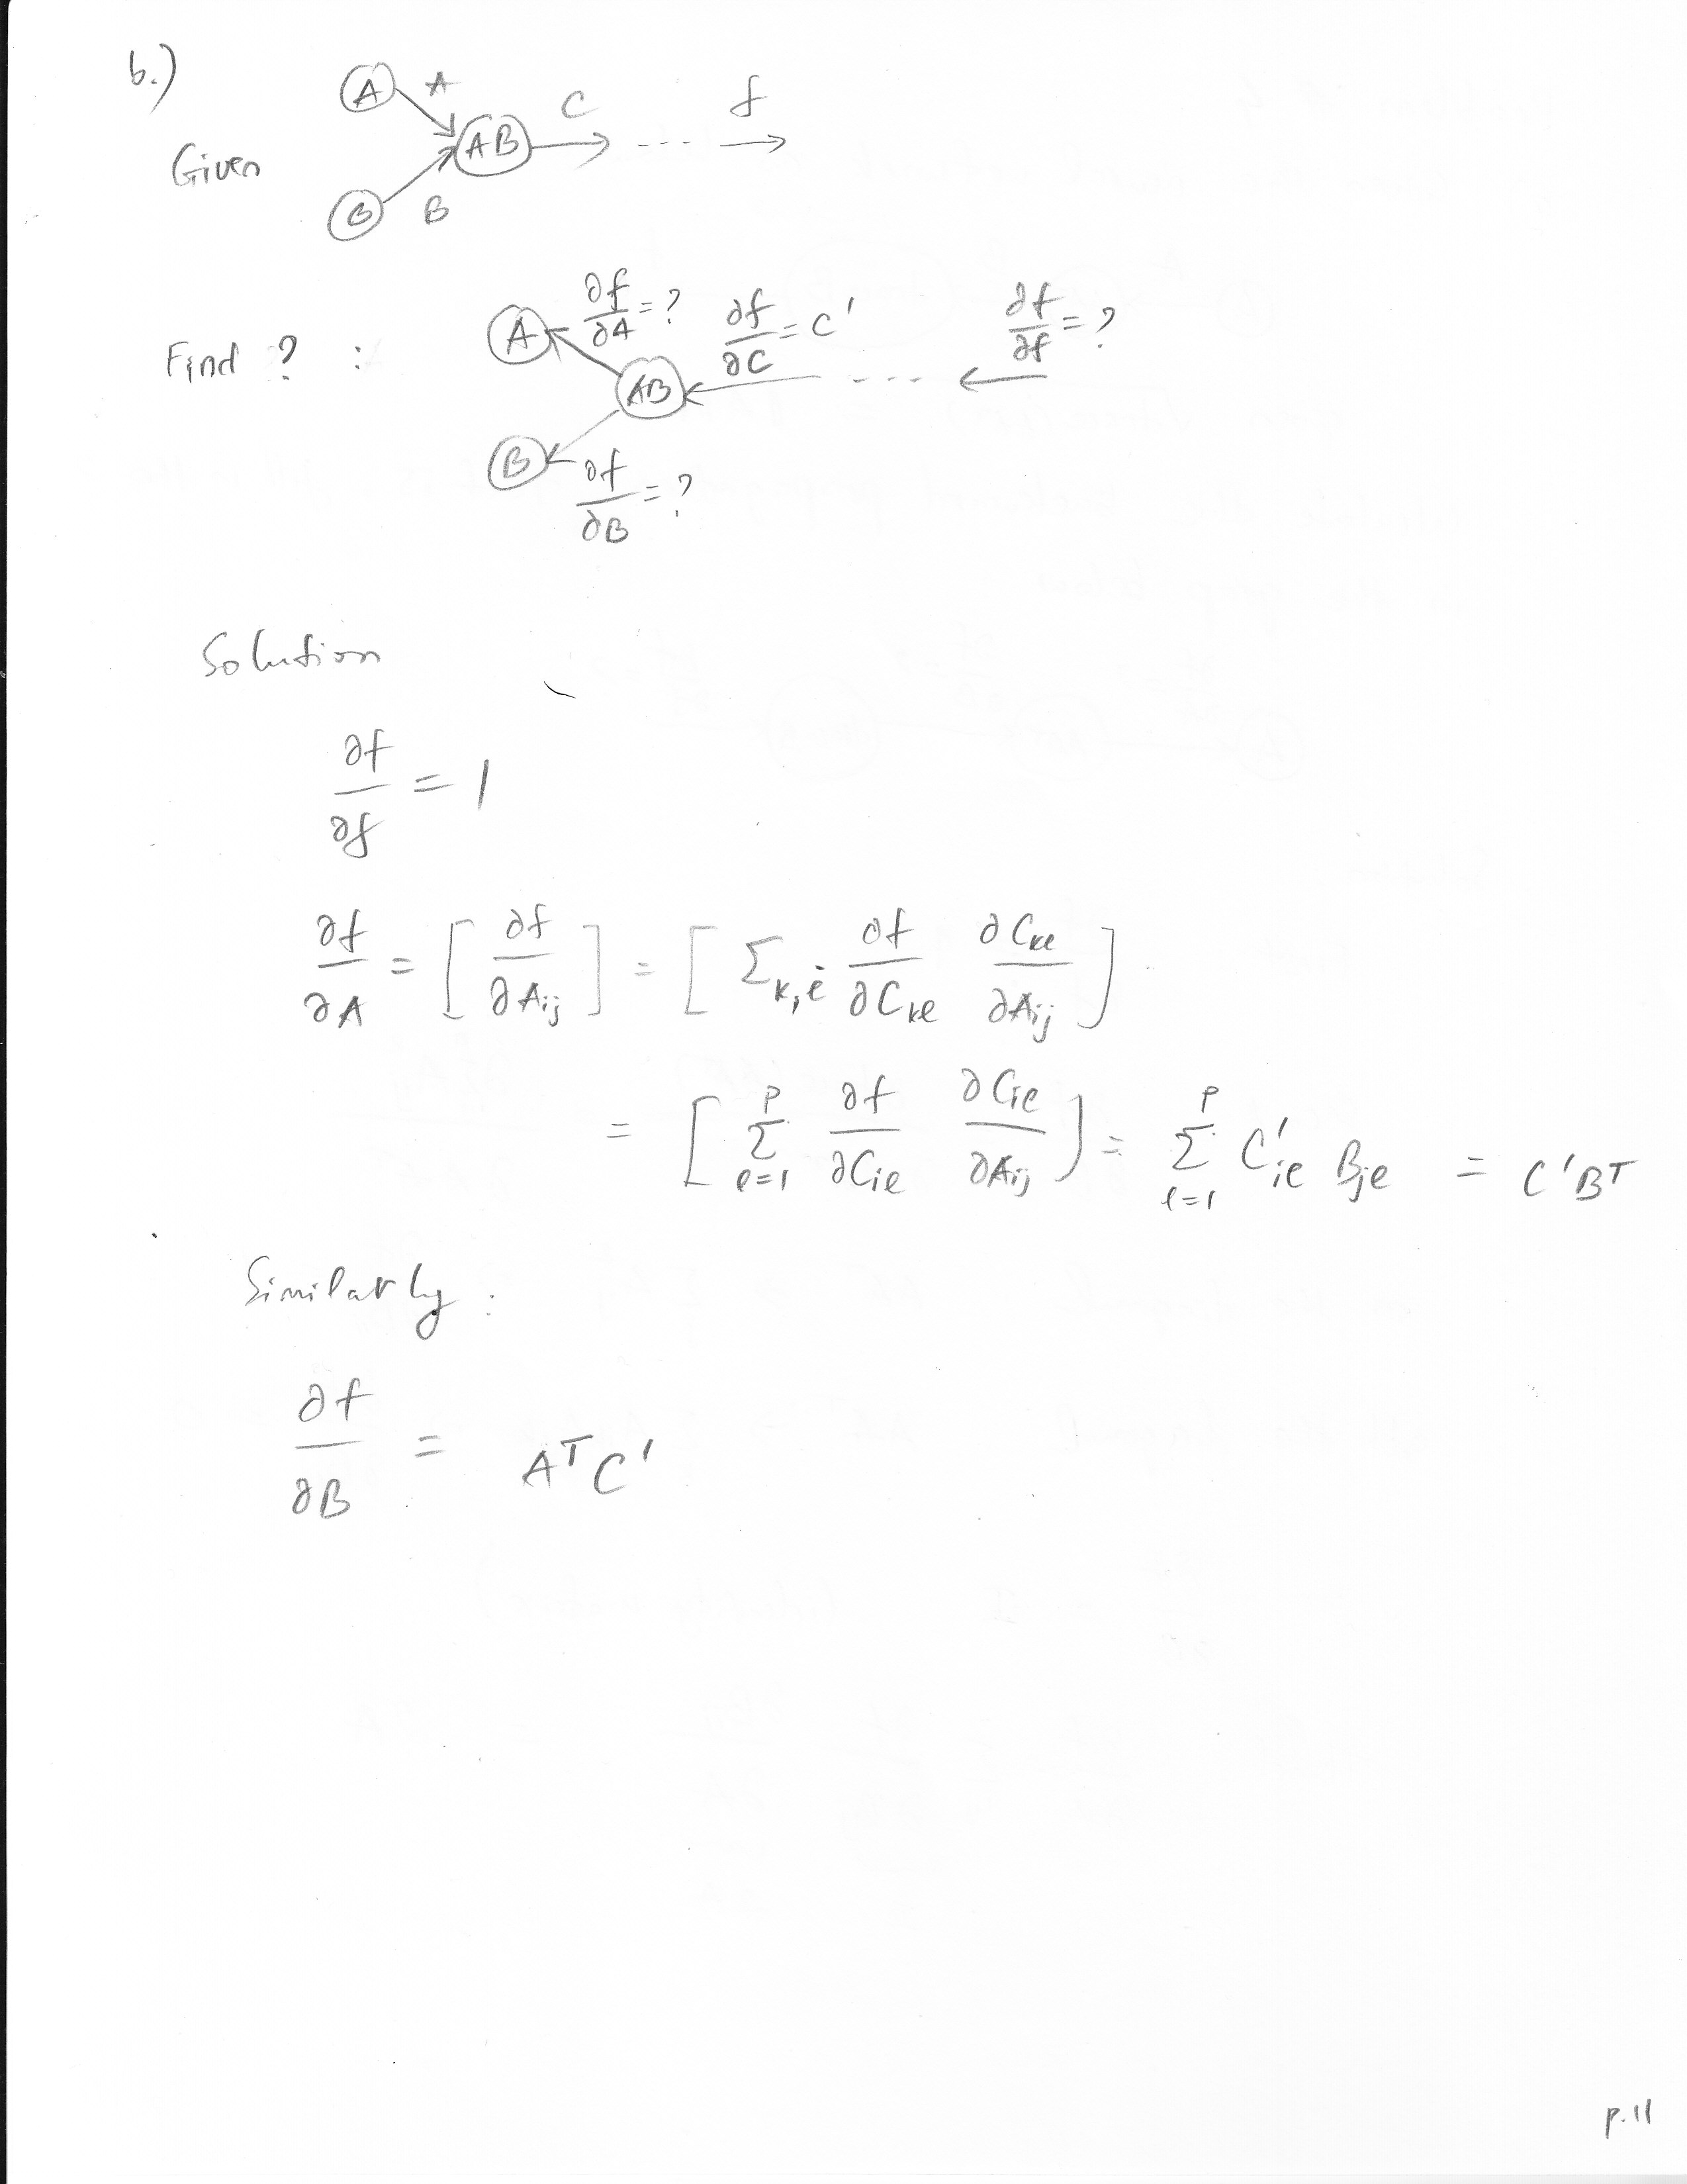 b.)
A A C f
Given AB
B B
Find ? : A ∂f/∂A = ? ∂f/∂C = C' ∂f/∂f = ?
AB
B ∂f/∂B = ?
Solution
∂f/∂f = 1
∂f/∂A = [ ∂f/∂A_ij ] = [ Σ_k,ℓ ∂f/∂C_kℓ ∂C_kℓ/∂A_ij ]
= [ Σ_ℓ=1^P ∂f/∂C_iℓ ∂C_iℓ/∂A_ij ] = Σ_ℓ=1^P C'_iℓ B_jℓ = C'B^T
Similarly :
∂f/∂B = A^T C'
p.11